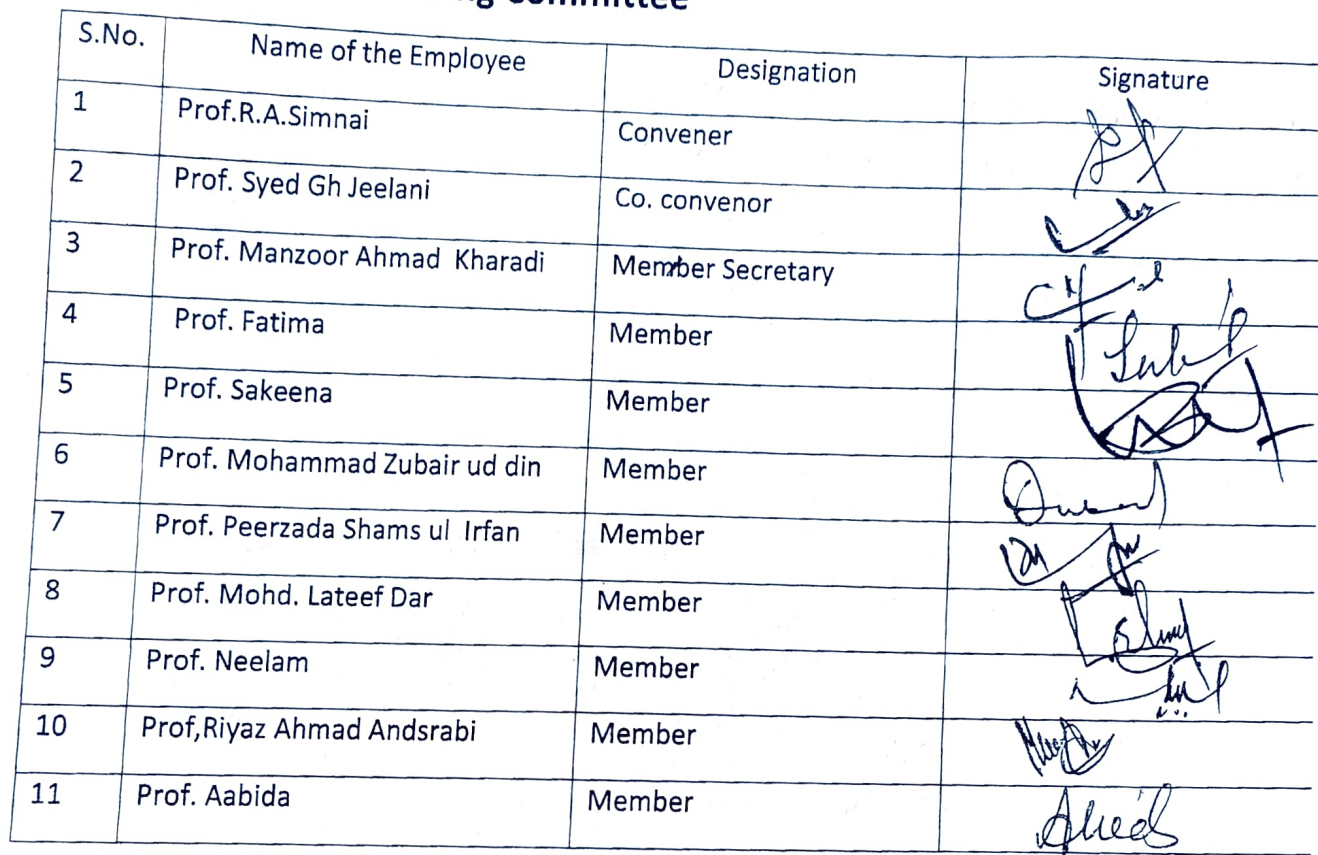 Committee
S.No. Name of the Employee Designation Signature
1 Prof.R.A.Simnai Convener
2 Prof. Syed Gh Jeelani Co. convenor
3 Prof. Manzoor Ahmad Kharadi Member Secretary
4 Prof. Fatima Member
5 Prof. Sakeena Member
6 Prof. Mohammad Zubair ud din Member
7 Prof. Peerzada Shams ul Irfan Member
8 Prof. Mohd. Lateef Dar Member
9 Prof. Neelam Member
10 Prof,Riyaz Ahmad Andsrabi Member
11 Prof. Aabida Member